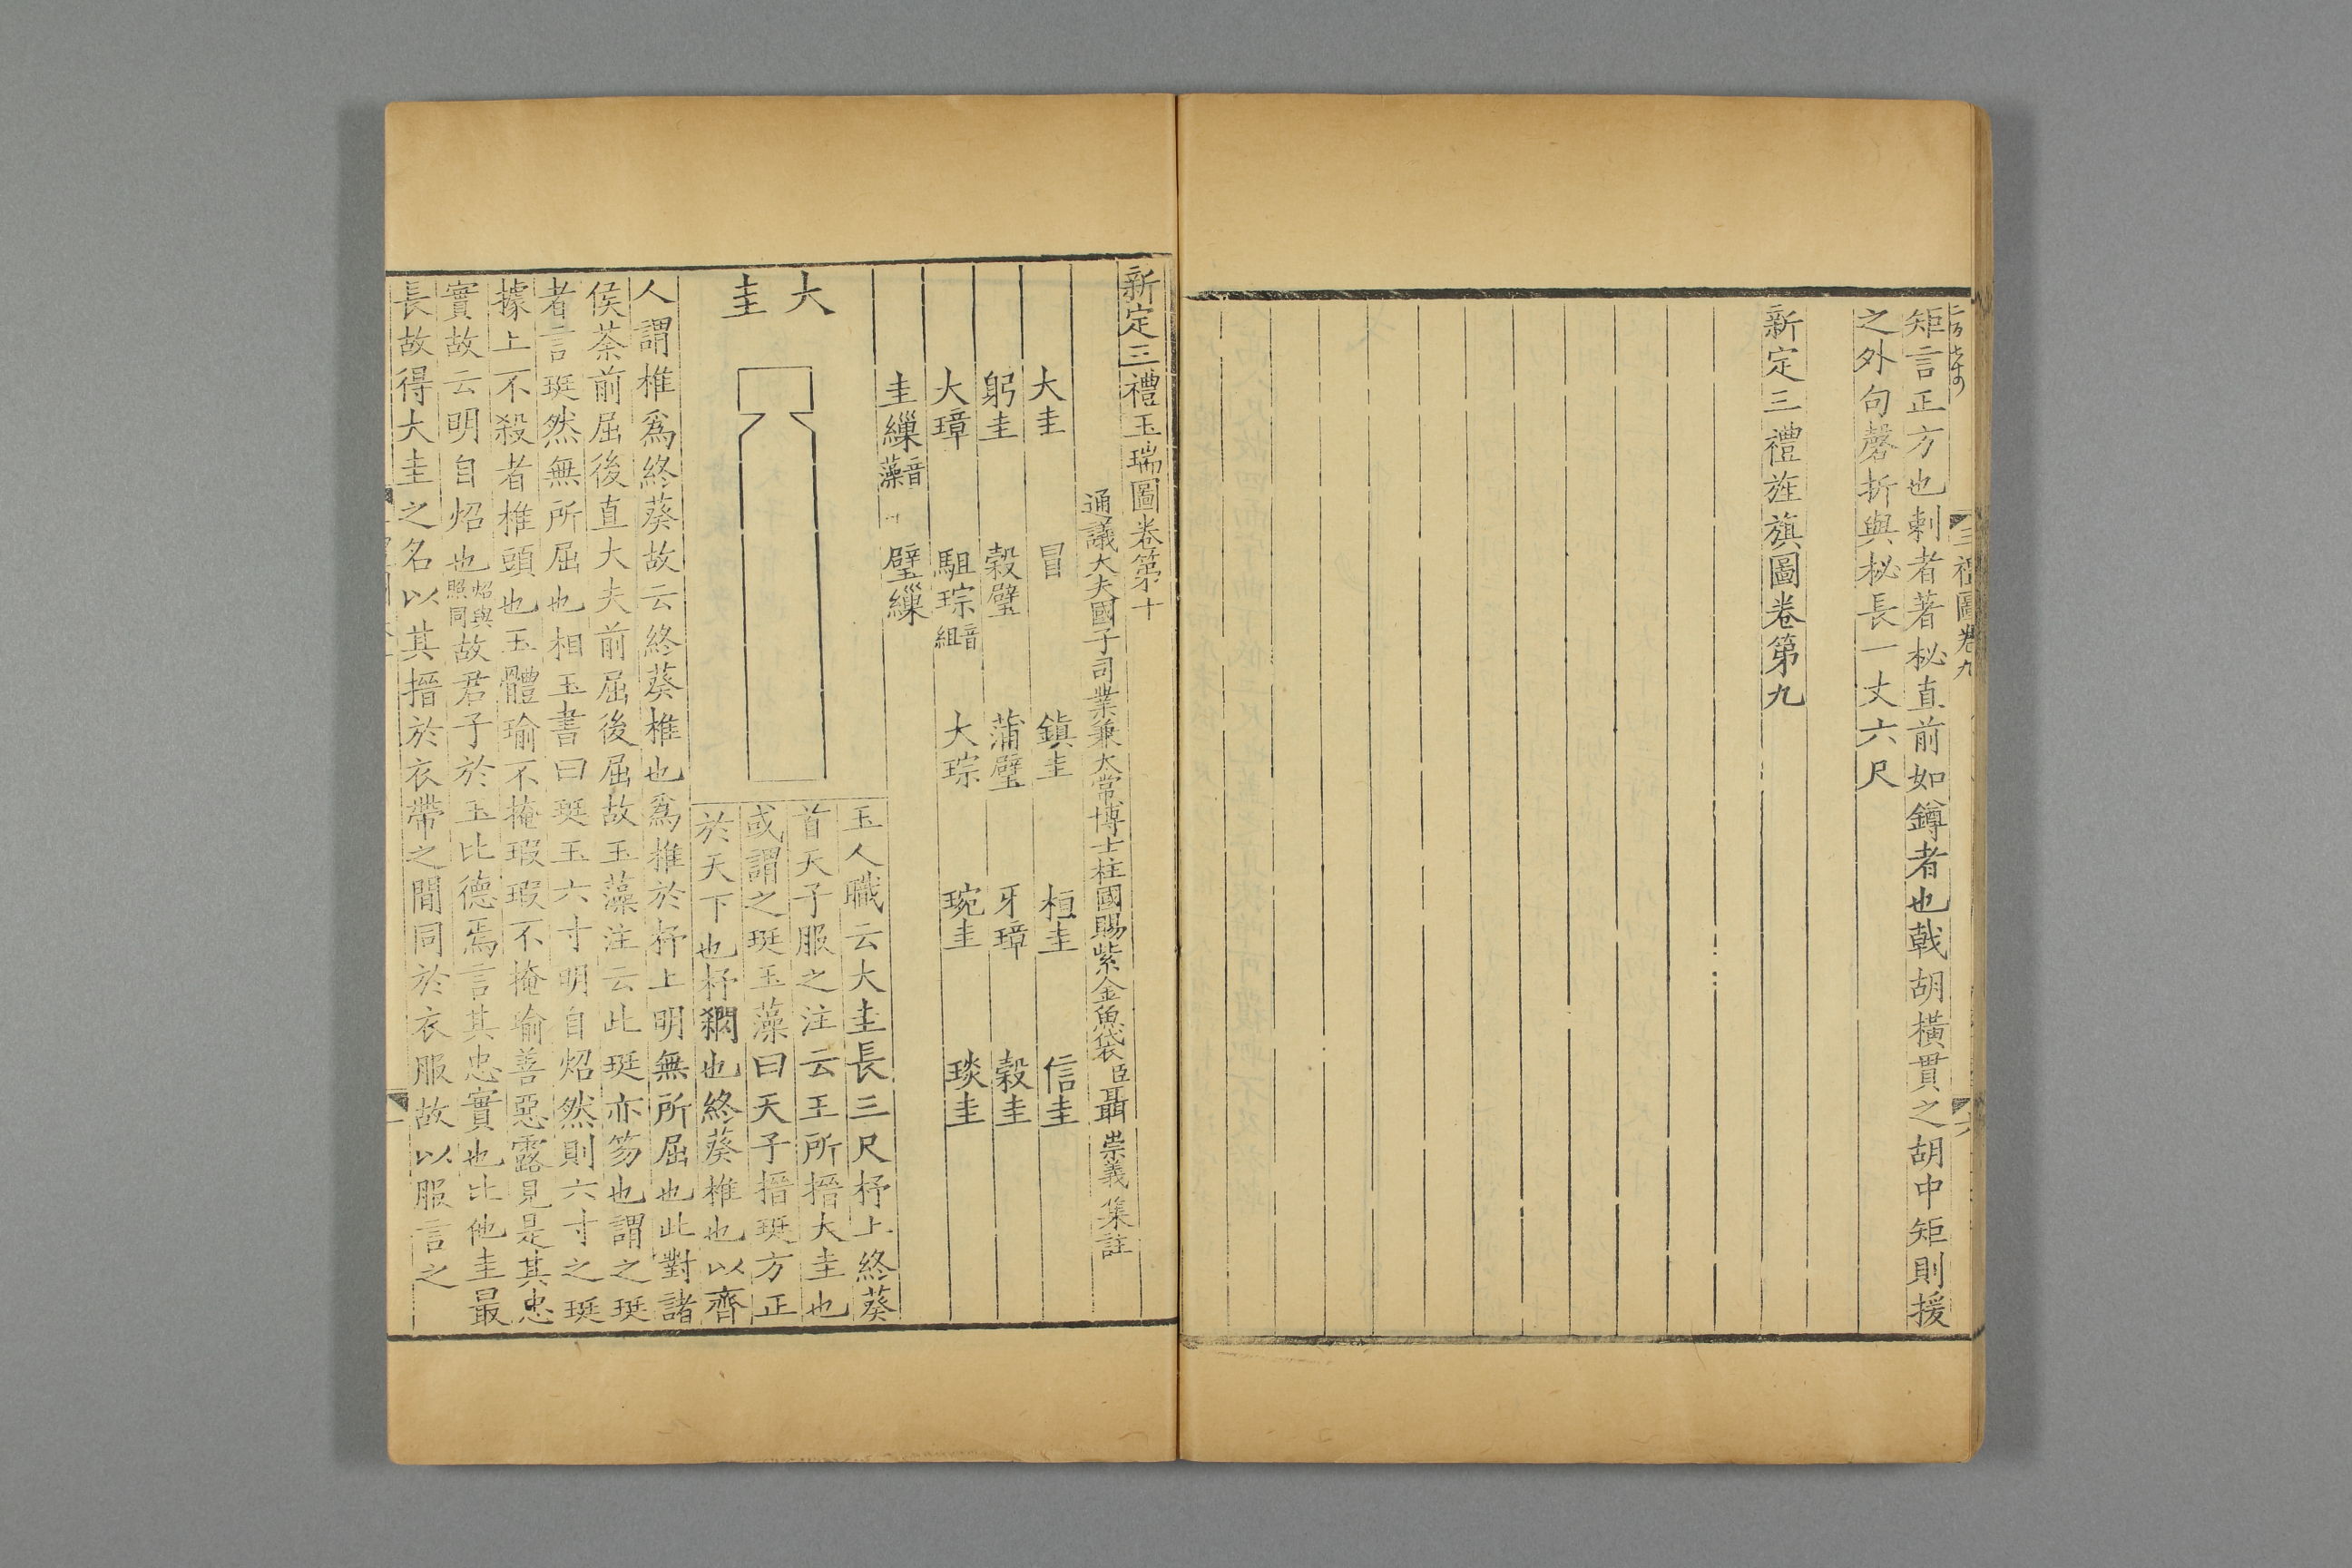 矩言正方也刺者著柲直前如鐏者也戟胡橫貫之胡中矩則援
之外句磬折與柲長一丈六尺
新定三禮旌旗圖卷第九
三禮圖卷九
六
新定三禮玉瑞圖卷第十
通議大夫國子司業兼太常博士柱國賜紫金魚袋臣聶崇義集註
大圭 冒 鎮圭 桓圭 信圭
躬圭 穀璧 蒲璧 牙璋 穀圭
大璋 駔琮音組 大琮 琬圭 琰圭
圭繅音藻 璧繅
大圭
玉人職云大圭長三尺杼上終葵
首天子服之注云王所搢大圭也
或謂之珽玉藻曰天子搢珽方正
於天下也杼閷也終葵椎也以齊
人謂椎爲終葵故云終葵椎也爲椎於杼上明無所屈也此對諸
侯荼前屈後直大夫前屈後屈故玉藻注云此珽亦笏也謂之珽
者言珽然無所屈也相玉書曰珽玉六寸明自炤然則六寸之珽
據上不殺者椎頭也玉體瑜不掩瑕瑕不掩瑜善惡露見是其忠
實故云明自炤也炤與照同故君子於玉比德焉言其忠實也比他圭最
長故得大圭之名以其搢於衣帶之間同於衣服故以服言之